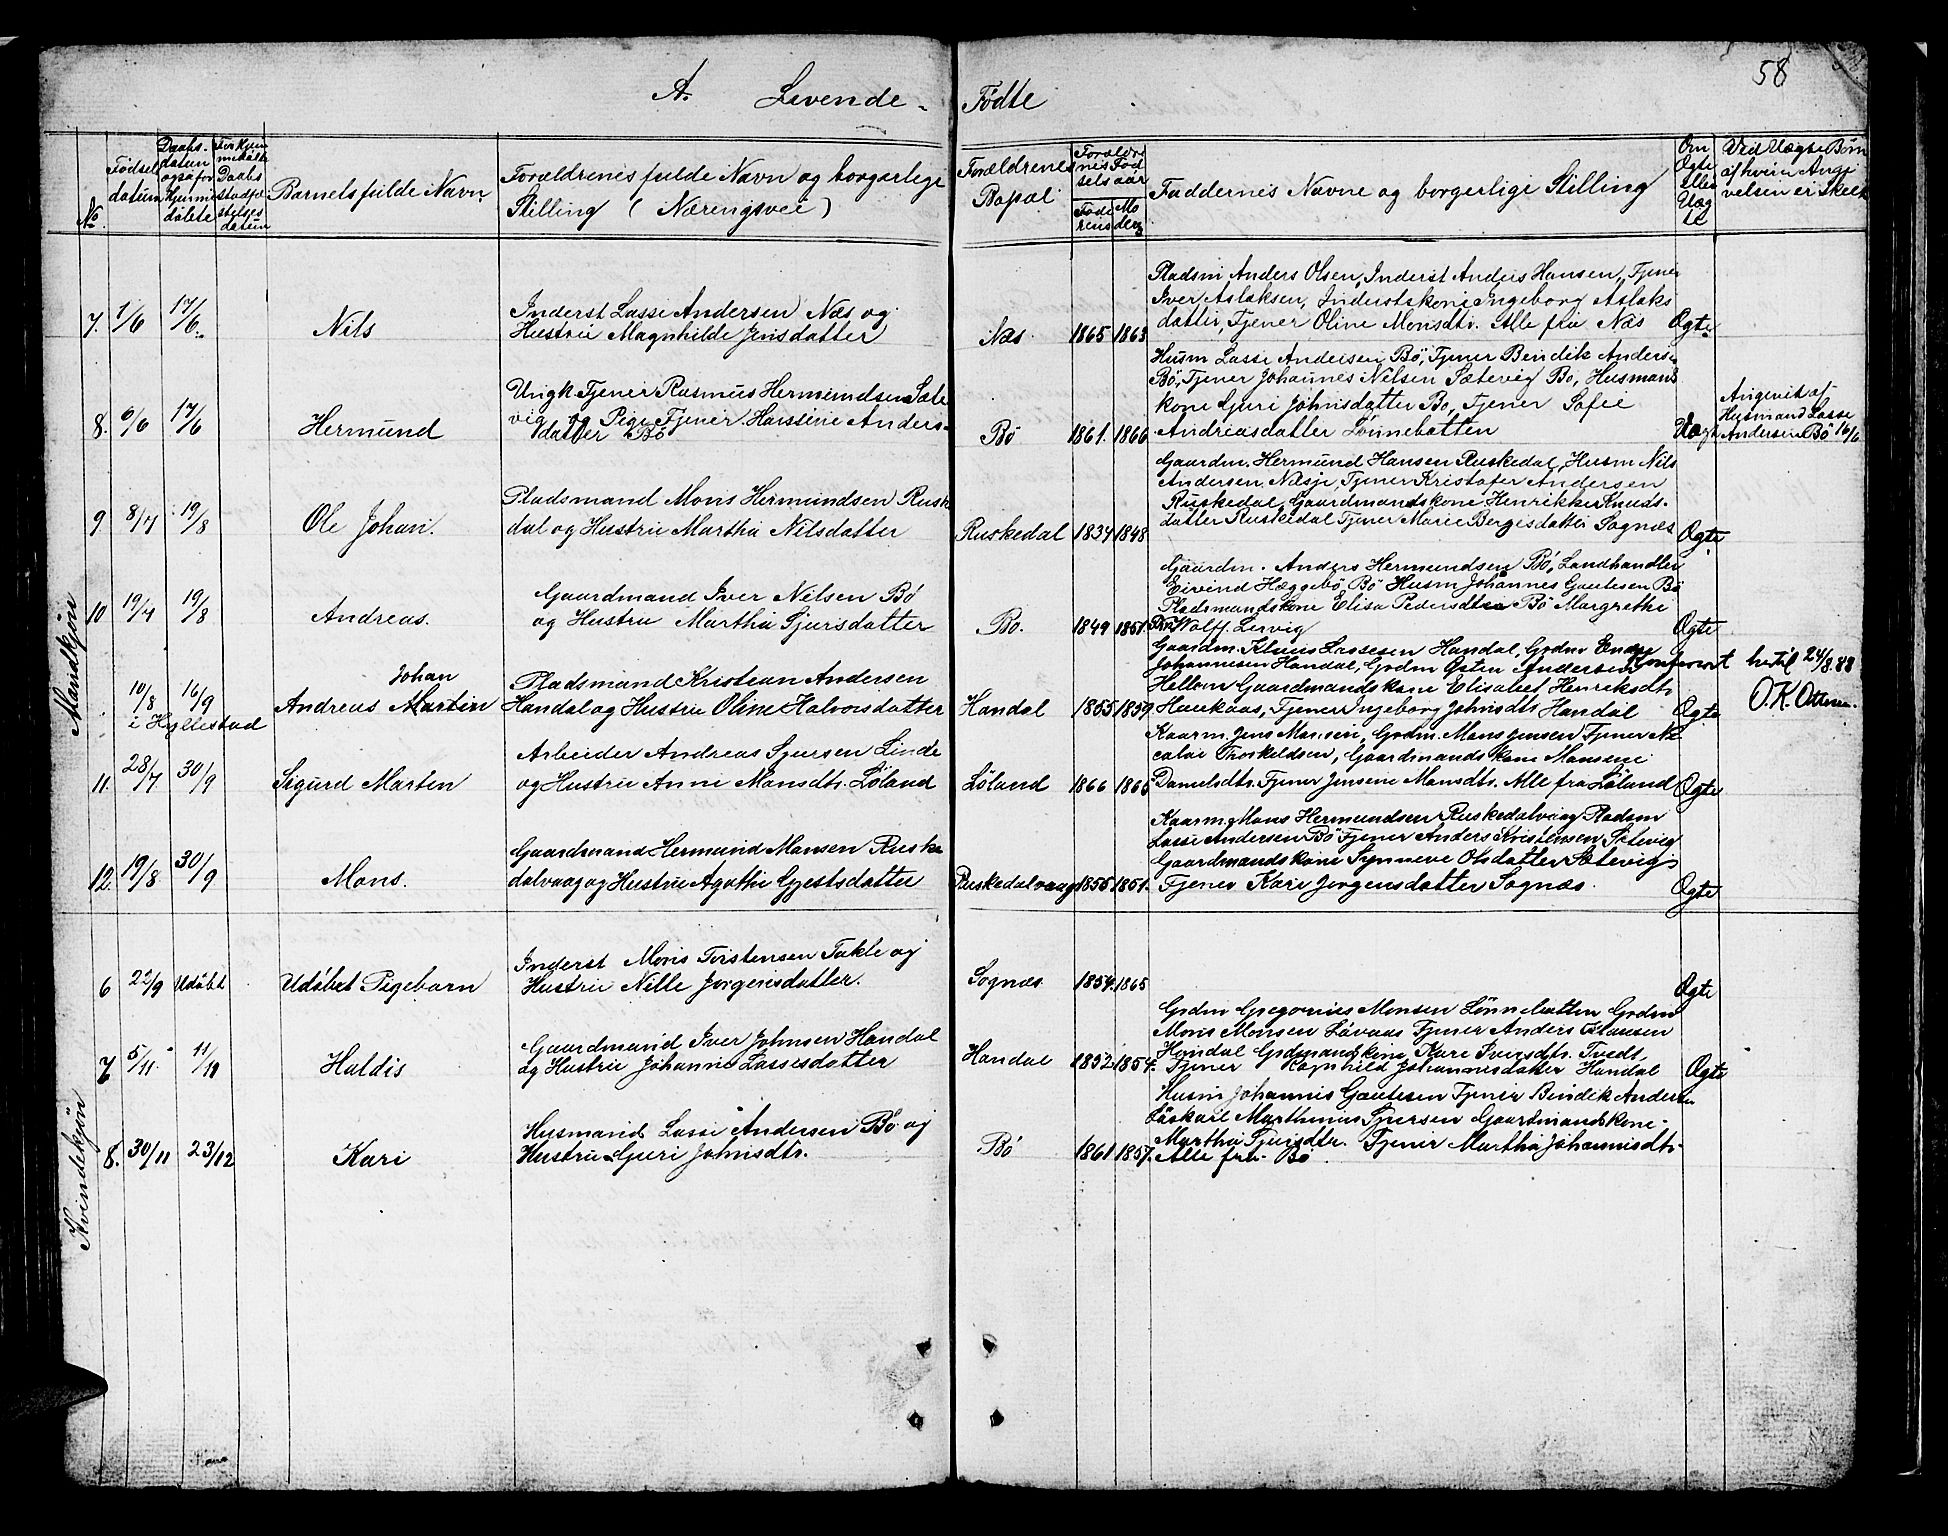 58
A. Levende Födte
No
Födsel datum
Daabs-datum ogsaa for Hjemmedöbte
Barnets fulde Navn
Forældrenes fulde Navn og borgerlige Stilling (Næringsvei)
Forældrenes Bopæl
Forældrenes Födselsaar
Faderens
Moderens
Faddernes Navne og borgerlige Stilling
Om Ægte eller Uægte
Ved Uægte Börn af hvem Angivelsen er skeet
Mandkjøn
7. 1/6 17/6
Nils
Inderst Lasse Andersen Næs og
Hustru Magnhilde Jensdatter
Næs 1865 1863
Pladsm Anders Olsen, Inderst Anders Hansen, Tjener
Iver Aslaksen, Inderstskone Ingeborg Aslaks
datter, Tjener Oline Monsdtr. Alle fra Næs
Ægte
8. 6/6 17/6
Hermund
Ungk Tjener Rasmus Hermundsen Sæte
vig og Pige Tjener Hansine Anders-
datter Bö
Bö 1861. 1866
Husm Lasse Andersen Bö, Tjener Bendik Anders.
Bö, Tjener Johannes Nilsen Sætevig Bo, Husmans
kone Guri Johnsdatter Bo, Tjener Sofie
Andreasdatter Lönnebotten
Uægt
Angivet af
Husmand Lasse
Andersen Bö 16/6
9 8/7 19/8
Ole Johan.
Pladsmand Mons Hermundsen Ruske
dal og Hustru Martha Nilsdatter
Ruskedal 1834 1848
Gaardm. Hermund Hansen Ruskedal, Husm Nils
Andersen Næsje, Tjener Kristofer Andersen
Ruskedal, Gaardmandskone Henrikke Knuds-
datter Ruskedal Tjener Marie Bergesdatter Sognæs
Ægte
10 19/7 19/8
Andreas.
Gaardmand Iver Nilsen Bö
og Hustru Martha Sjursdatter
Bo. 1849 1851
Gaardm. Anders Hermundsen Bö, Landhandler
Eivind Hæggebö Bö Husm Johannes Gautesen Bö
Pladsmandskone Elisa Pedersdtr Bö Margrethe
Wolff. Lervig
Ægte
10/8 16/9
i Hyllestad
Johan
Andreas Martin
Pladsmand Kristian Andersen
Handal og Hustru Oline Halvorsdatter
Handal 1855 1859
Gaardm. Klaus Lassesen Handal, Grdm Endre
Johannesen Handal, Grdm Östen Andersen
Hellem Gaardmandskone Elisabet Henriksdtr
Haukaas, Tjener Ingeborg Johnsdtr Handal
Ægte
Konfereret hertil 24/8.88
O.K. Ottesen.
11. 28/7 30/9
Sigurd Marten
Arbeider Andreas Sjursen Linde
og Hustru Anne Monsdtr. Löland
Löland 1866 1865
Kaarm. Jens Mansen, Grdm. Mons Jensen Tjener Ni
colai Thorkeldsen, Gaardmandskone Mansene
Danielsdtr. Tjener Jensine Monsdtr. Alle fra Löland
Ægte
12 19/8 30/9
Mons.
Gaardmand Hermund Monsen Ruske
dalvaag og Hustru Agathe Gjestsdatter
Ruskedalvaag 1855 1851.
Kaarm Mons Hermundsen Ruskedalvaag Pladsm
Lasse Andersen Bö Tjener Anders Kristensen Sætevig
Gaardmandskone Synneve Olsdatter Sætevig
Tjener Kari Jorgensdatter Sognæs.
Ægte
Kvindekjøn
6 22/9 Udöbt
Udöbet Pigebarn
Inderst Mons Torstensen Takle og
Hustru Nille Jorgensdatter.
Sognæs 1854. 1865
Ægte
7 5/11 11/11
Haldis
Gaardmand Iver Johnsen Handal
og Hustru Johanne Lassesdatter
Handal 1852 1854
Grdm Gregorius Monsen Lönnebotten Grdm
Mons Monsen Lövaas Tjener Anders Clausen
Handal Grdmandskone Kari Iversdtr. Tvedt
Tjener Ragnhild Johannesdatter Handal
Ægte
8. 30/11 23/12
Kari
Husmand Lasse Andersen Bö og
Hustru Guri Johnsdtr.
Bö 1861 1857.
Husm Johannes Gautesen Tjener Bendik Andersen
Löskarl Marthinus Sjursen Gaardmandskone
Martha Sjursdtr. Tjener Martha Johannesdtr.
Alle fra Bö